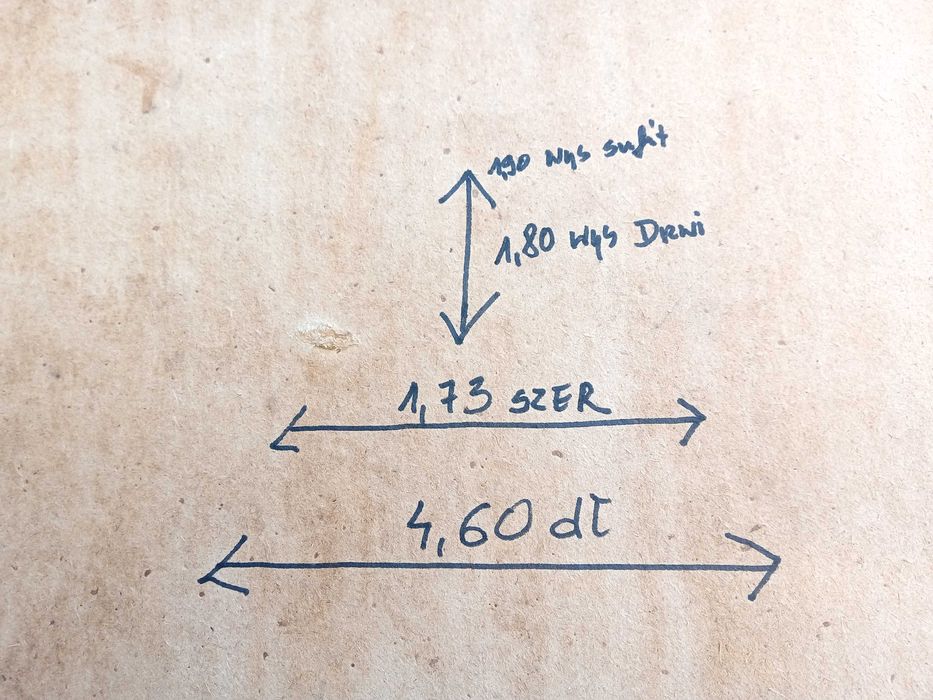 1,90 wys sufit
1,80 wys Drzwi
1,73 SZER
4,60 dł